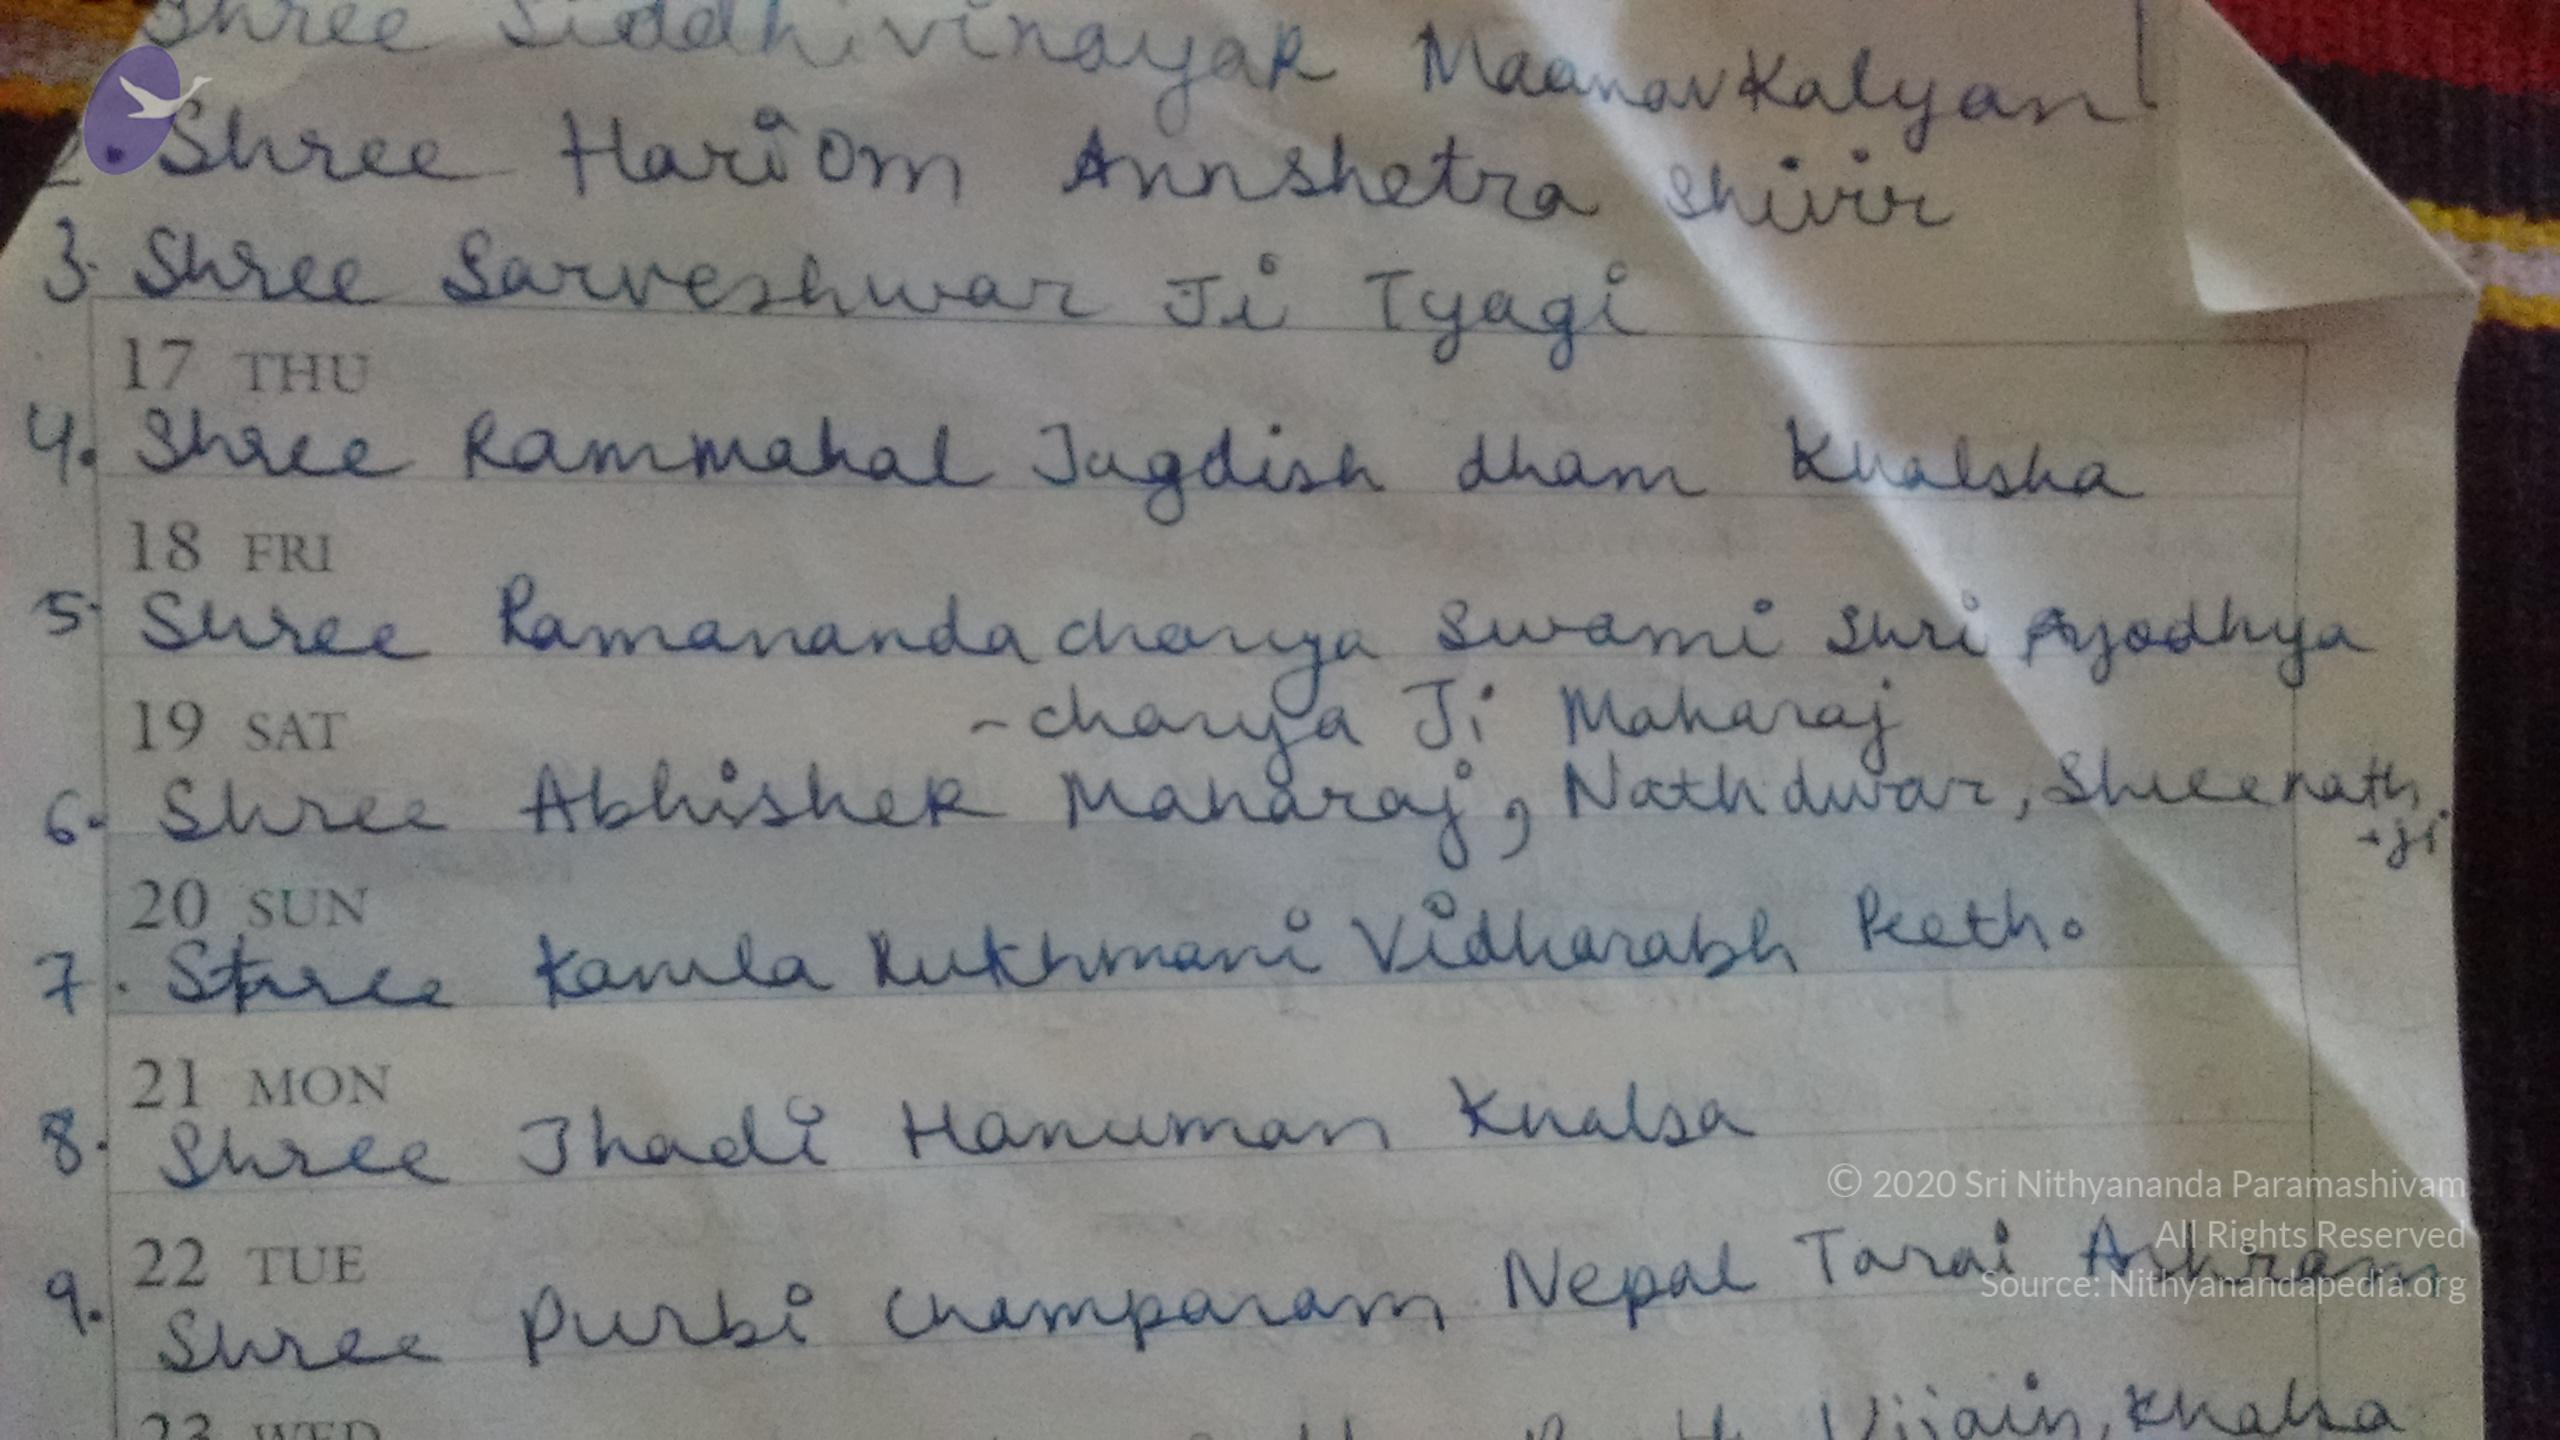 Shree Siddhivinayak Maanav Kalyan
2. Shree Hari Om Annshetra Shivir
3. Shree Sarveshwar Ji Tyagi
17 THU
4. Shree Rammahal Jugdish dham Khalsha
18 FRI
5. Shree Ramanandacharya Swami Shri Ayodhya
19 SAT
-charya Ji Maharaj
6. Shree Abhishek Maharaj, Nathdwar, Shreenath
-ji
20 SUN
7. Shree Kamla Rukhmani Vidharabh Peeth.
21 MON
8. Shree Jhadi Hanuman Khalsa
22 TUE
9. Shree Purbi Champaram Nepal Tarai Ashram
23 WED
Ujjain, Khalsa
© 2020 Sri Nithyananda Paramashivam
All Rights Reserved
Source: Nithyanandapedia.org